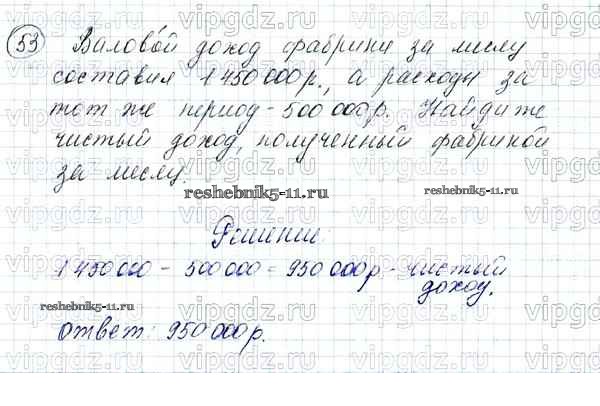 53 Валовой доход фабрики за месяц
составил 1 450 000 р., а расходы за
тот же период - 500 000 р. Найдите
чистый доход, полученный фабрикой
за месяц.
reshebnik5-11.ru
reshebnik5-11.ru
Решение:
1 450 000 - 500 000 = 950 000 р - чистый
доход.
reshebnik5-11.ru
Ответ: 950 000 р.
vipgdz.ru